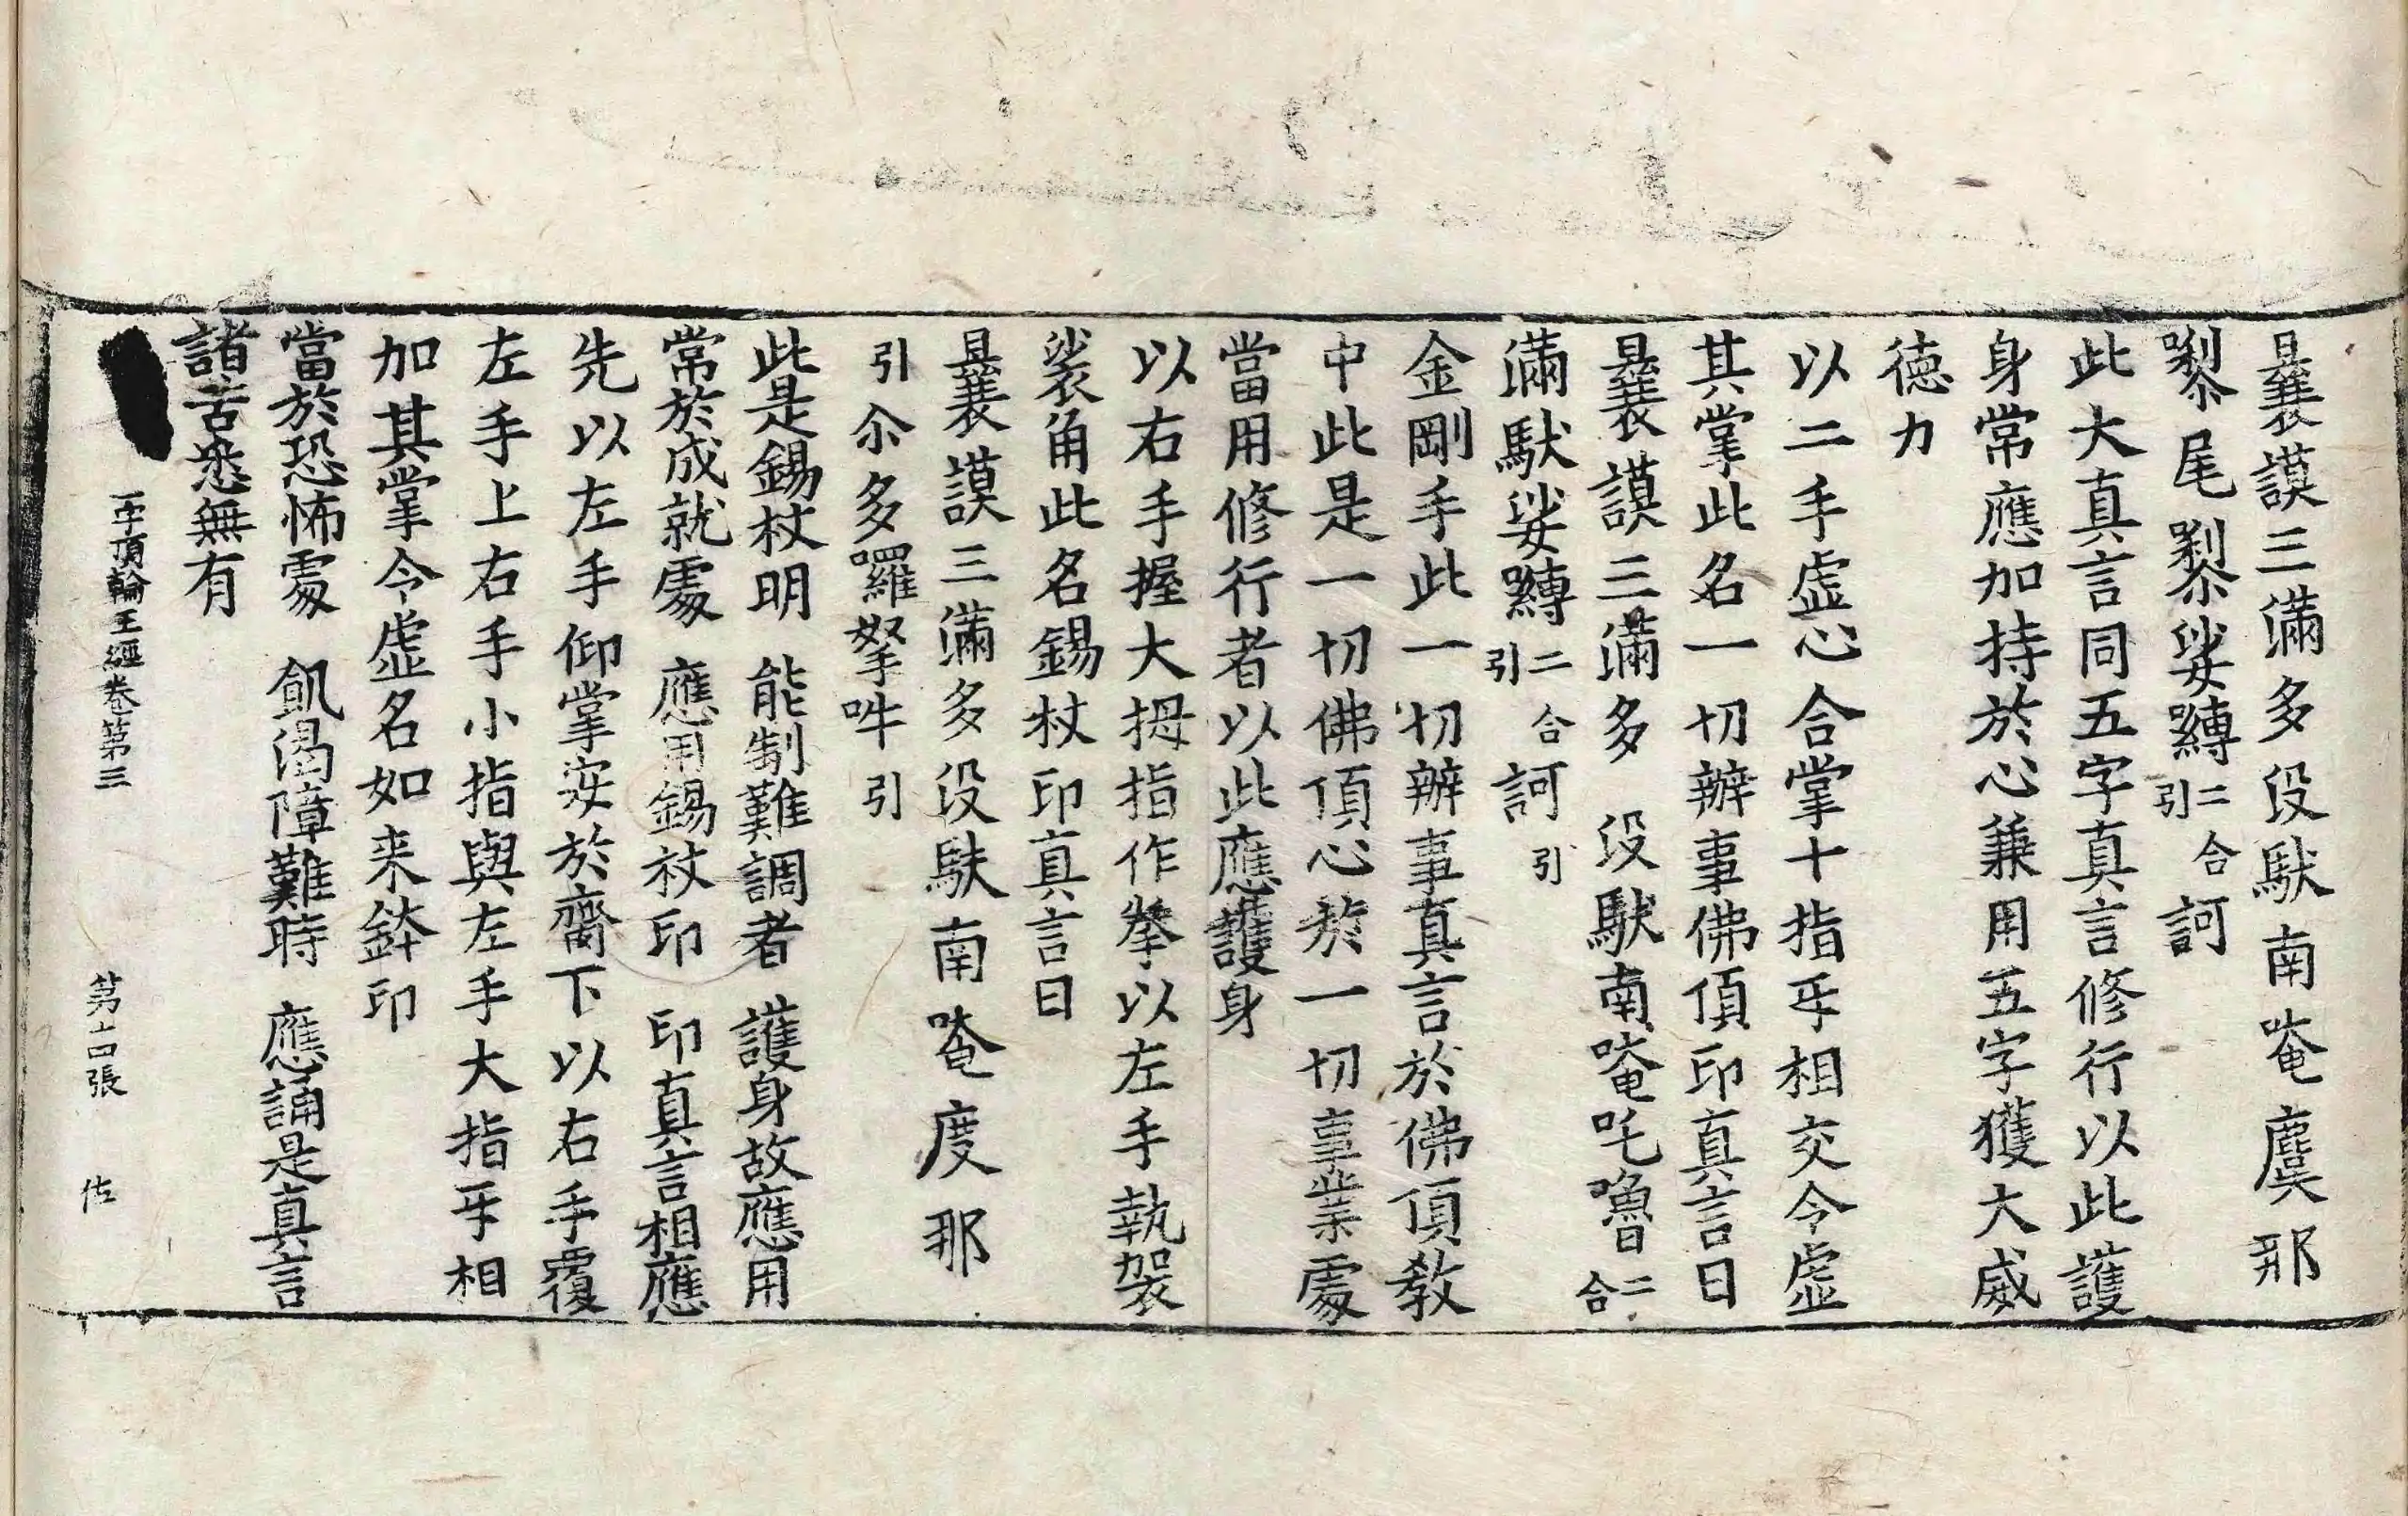 曩謨三滿多没馱南唵麌那
㗚尾㗚娑嚩二合引訶
此大真言同五字真言修行以此護
身常應加持於心兼用五字獲大威
徳力
以二手虛心合掌十指㸦相交令虛
其掌此名一切辦事佛頂印真言曰
曩謨三滿多没馱南唵吒嚕二合
滿馱娑嚩二合引訶引
金剛手此一切辦事真言於佛頂教
中此是一切佛頂心於一切事業䖏
當用修行者以此應護身
以右手握大拇指作拳以左手執袈
裟角此名錫杖印真言曰
曩謨三滿多没馱南唵度那
引尒多囉拏吽引
此是錫杖明　能制難調者　護身故應用
常於成就䖏　應用錫杖印　印真言相應
先以左手仰掌安於齋下以右手覆
左手上右手小指與左手大指㸦相
加其掌令虛名如来鉢印
當於恐怖䖏　飢渴障難時　應誦是真言
諸苦悉無有
一字頂輪王經卷第三　第十四張　佐